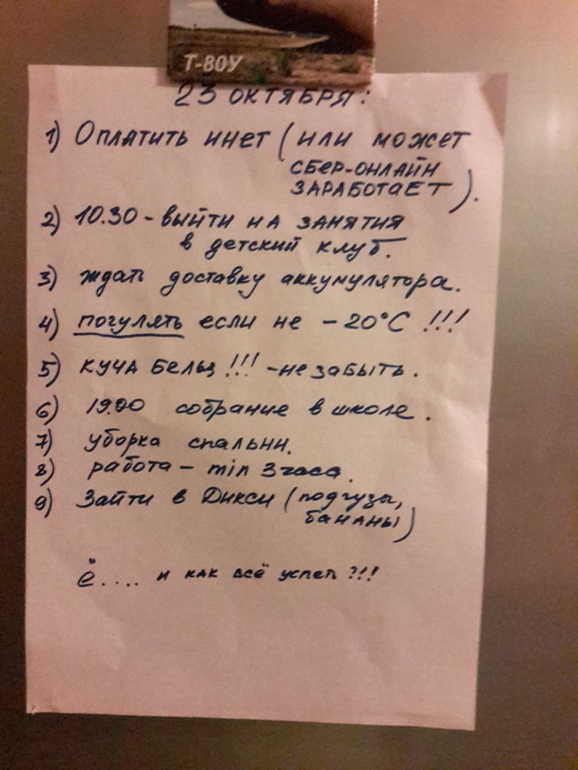 Т-80У
23 ОКТЯБРЯ:
1) ОПЛАТИТЬ ИНЕТ (ИЛИ МОЖЕТ
СБЕР-ОНЛАЙН
ЗАРАБОТАЕТ).
2) 10.30 - ВЫЙТИ НА ЗАНЯТИЯ
в детский клуб.
3) ждать доставку аккумулятора.
4) погулять если не - 20°С !!!
5) КУЧА БЕЛЬЯ!!! - не забыть.
6) 19.00 собрание в школе.
7) уборка спальни.
8) работа - min 3 часа.
9) Зайти в Дикси (подгузы,
бананы)
Ё.... и как всё успеть?!!!